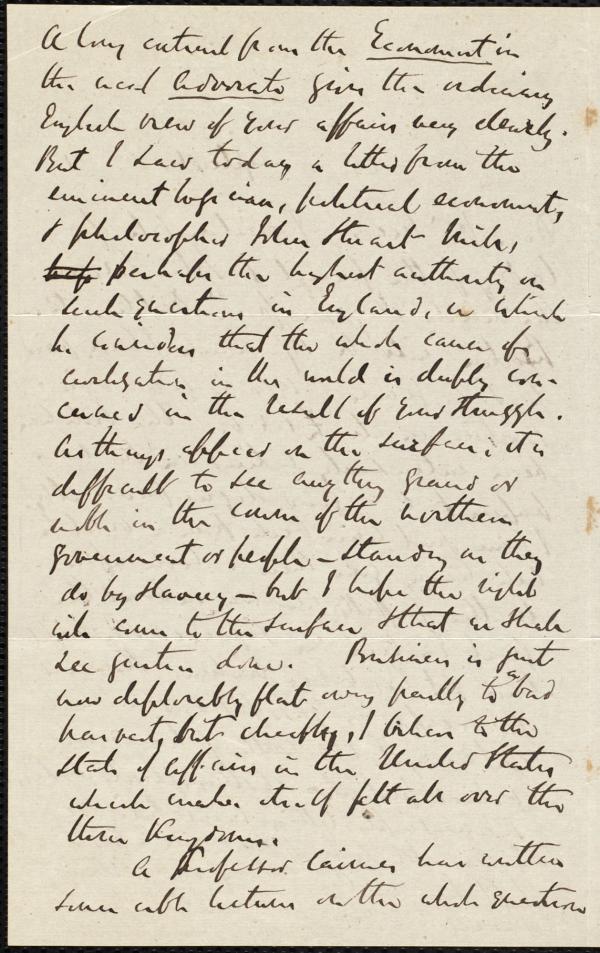 A long extract from the Economist in
the next Advocate gives the ordinary
English view of your affairs very clearly.
But I saw today a letter from the
eminent logician, political economist,
& philosopher John Stuart Mill,
perhaps the highest authority on
such questions in England, in which
he considers that the whole cause of
civilization in the world is deeply con-
cerned in the result of your struggle.
As things appear on the surface, it is
difficult to see anything grand or
noble in the course of the northern
government or people – standing as they
do by slavery – but I hope the right
will come to the surface & that we shall
see justice done. Business is just
now deplorably flat owing partly to a bad
harvest, but chiefly, I believe to the
state of affairs in the United States
which makes itself felt all over the
three Kingdoms.
A Professor Cairnes has written
some able lectures on the whole question